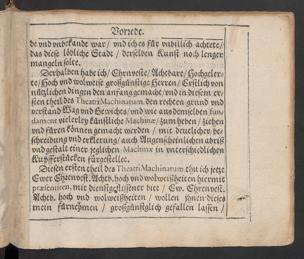 Vorrede.
de vnd vnbekande war / vnd ich es für vnbillich achtete /
das diese löbliche Stadt / derselben Kunst noch lenger
mangeln solte.
Derhalben habe ich / Ehrnveste / Achtbare / Hochgeler-
te / Hoch vnd wolweise großgünstige Herren / Erstlich von
nützlichen dingen den anfang gemacht / vnd in diesem er-
sten theil des Theatri Machinarum, den rechten grund vnd
verstand Wag vnd Gewichts / vnd wie aus demselben fun-
dament vielerley künstliche Machinæ / zum heben / ziehen
vnd füren können gemacht werden / mit deutlicher be-
schreibung vnd erklerung / auch Augenscheinlichen abriß
vnd gestalt einer jeglichen Machinæ in vnterschiedlichen
Kupfferstücken fürgestellet.
Diesen ersten theil des Theatri Machinarum thu ich jetzt
Ewer Ehrenvest. Achtb. hoch vnd wolweißheiten hiermit
præsentiren, mit dienstgeflissener bitt / Ew. Ehrenvest.
Achtb. hoch vnd wolweißheiten / wollen jhnen dieses
mein fürnehmen / großgünstiglich gefallen lassen /